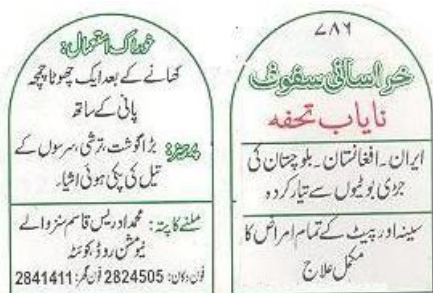 ۷۸۶
خراسانی سفوف
نایاب تحفہ
ایران۔ افغانستان۔ بلوچستان کی
جڑی بوٹیوں سے تیار کردہ
سینہ اور پیٹ کے تمام امراض کا
مکمل علاج
خوراک استعمال:
کھانے کے بعد ایک چھوٹا چمچہ
پانی کے ساتھ
پرہیز: بڑا گوشت، ترشی، سرسوں کے
تیل کی پکی ہوئی اشیا۔
ملنے کا پتہ: محمد ادریس قاسم سنز والے
نیو مشن روڈ، کوئٹہ
فون دکان: 2824505 فون گھر: 2841411